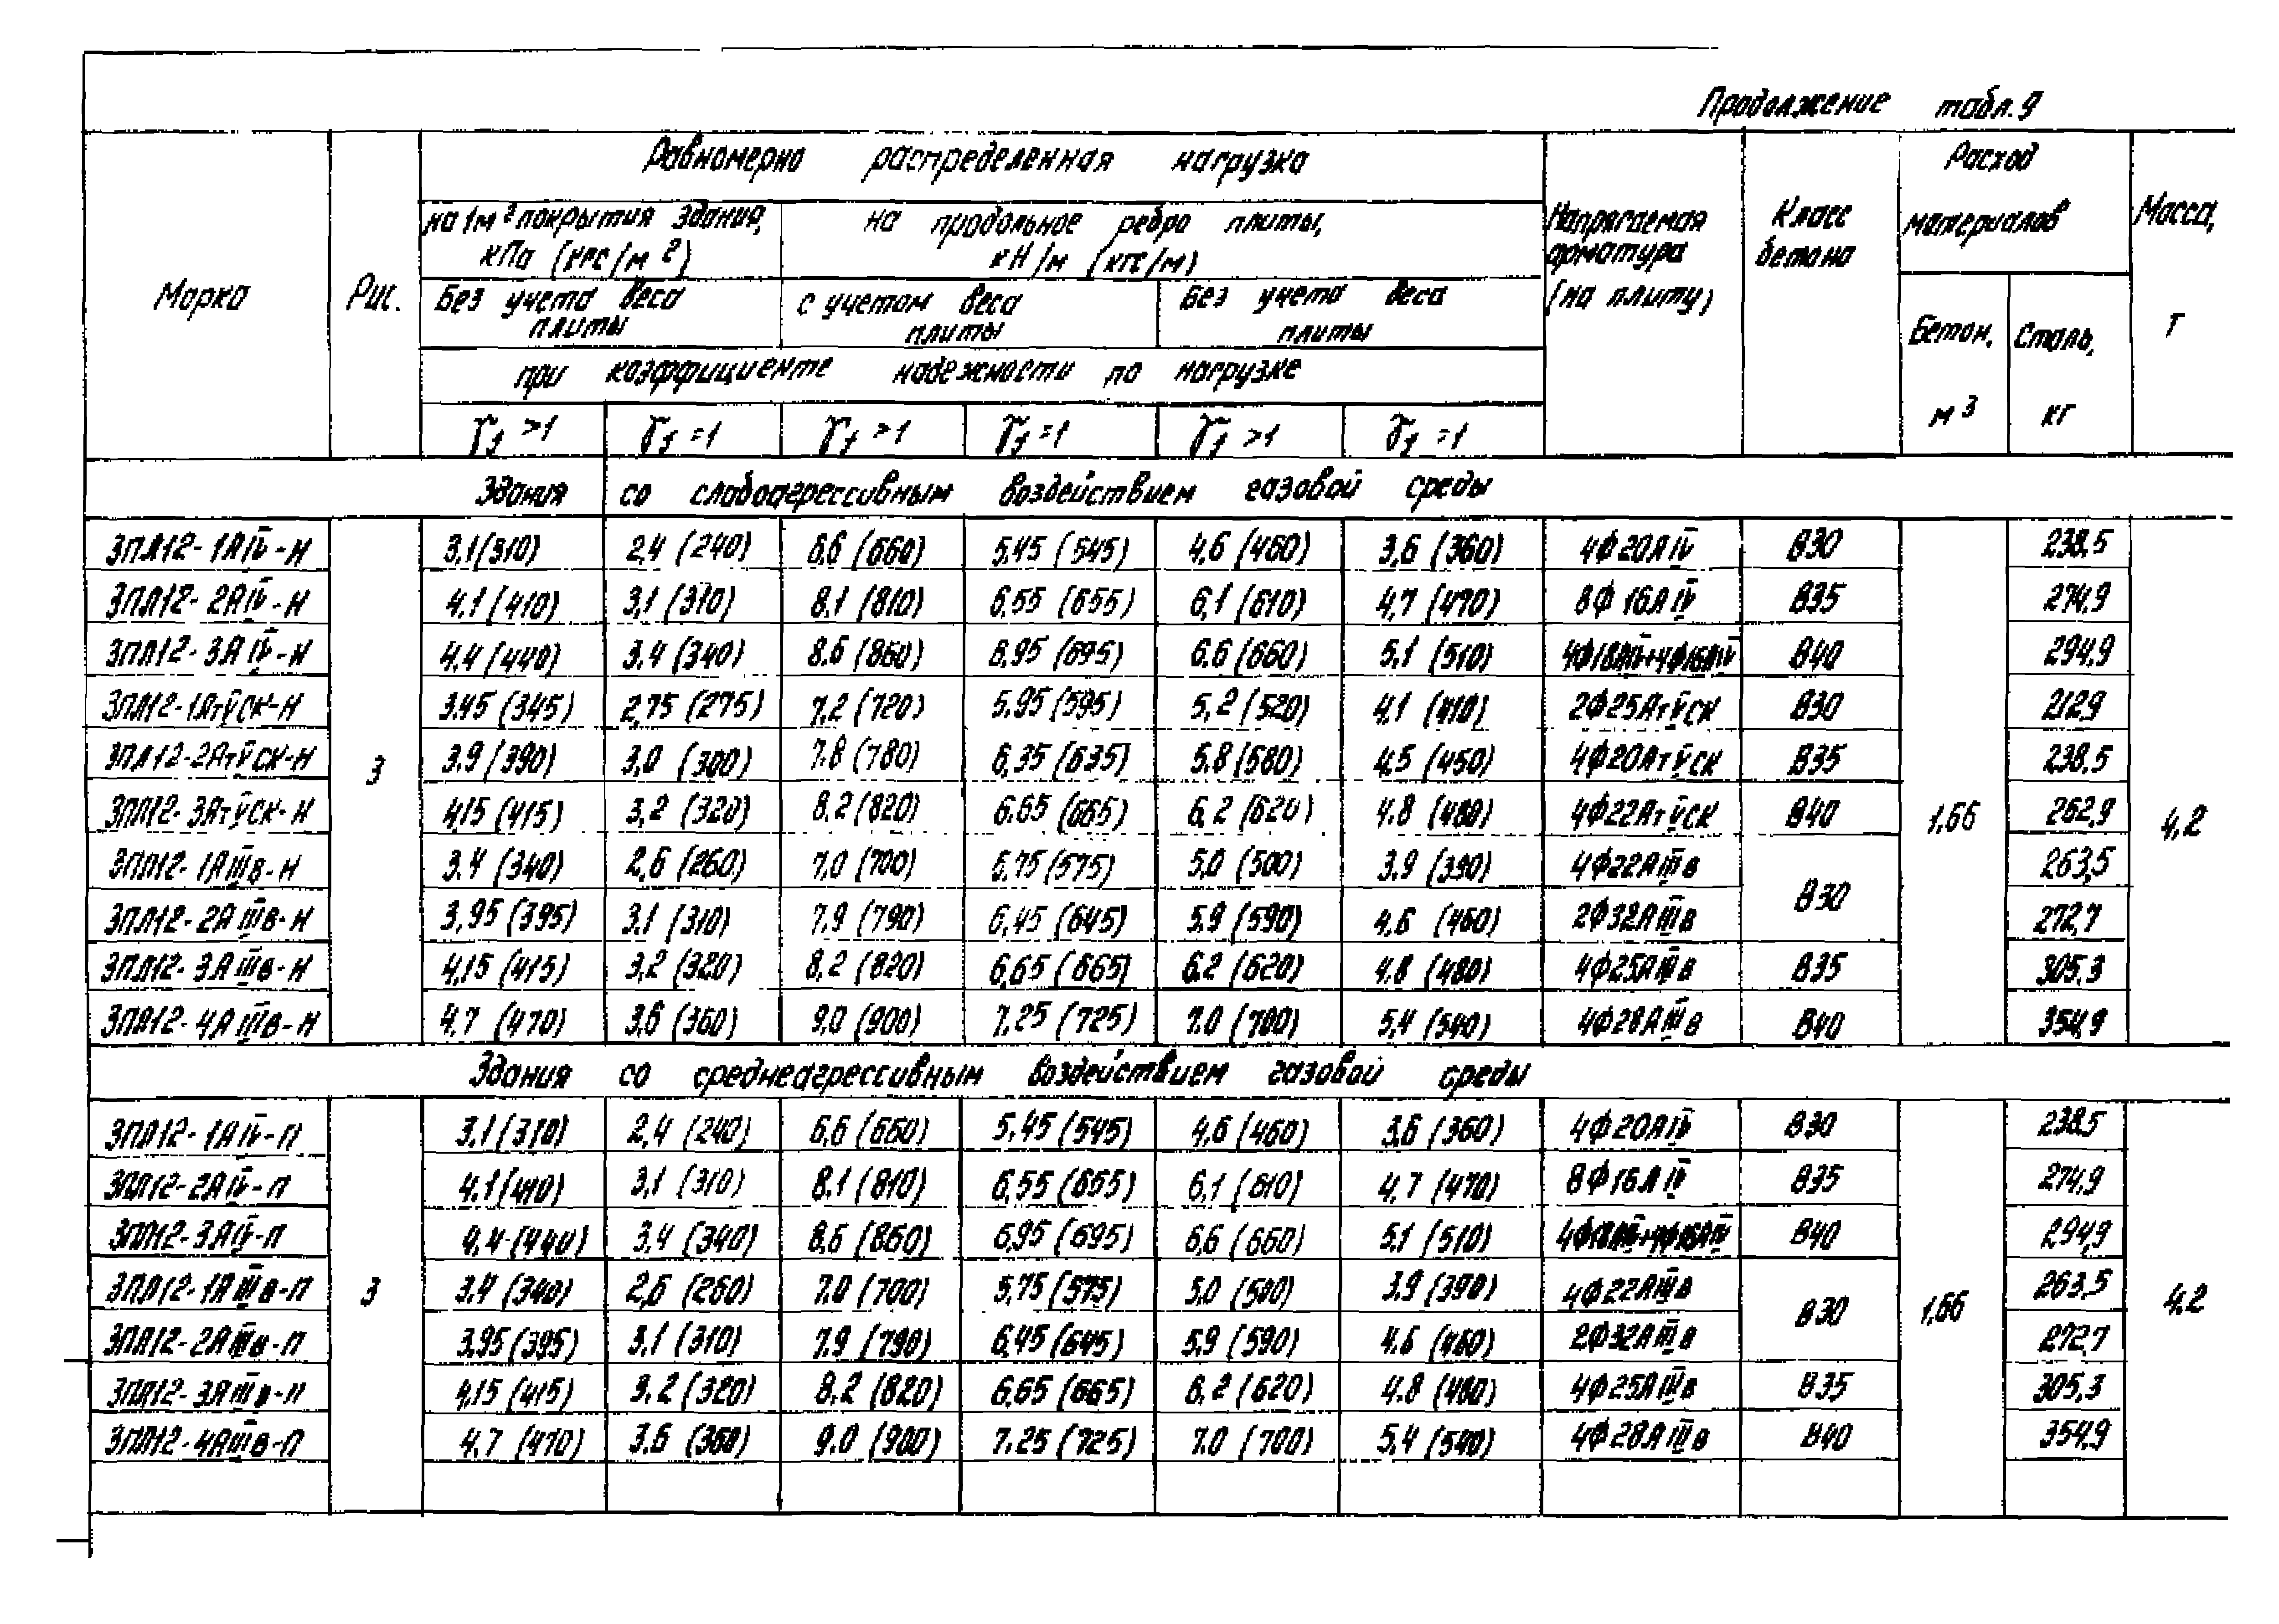 Продолжение табл. 9
Марка
Рис.
Равномерно распределенная нагрузка
на 1м² покрытия здания,
кПа (кгс/м²)
на продольное ребро плиты,
кН/м (кгс/м)
Без учета веса
плиты
с учетом веса
плиты
Без учета веса
плиты
при коэффициенте надежности по нагрузке
γf >1 γf =1 γf >1 γf =1 γf >1 γf =1
Напрягаемая
арматура
(на плиту)
Класс
бетона
Расход
материалов
Бетон,
м³
Сталь,
кг
Масса,
т
Здания со слабоагрессивным воздействием газовой среды
3ПЛ12-1АIV-Н 3,1(310) 2,4 (240) 6,6 (660) 5,45 (545) 4,6 (460) 3,6 (360) 4ф20АIV В30 238,5
3ПЛ12-2АIV-Н 4,1 (410) 3,1 (310) 8,1 (810) 6,55 (655) 6,1 (610) 4,7 (470) 8ф16АIV В35 274,9
3ПЛ12-3АIV-Н 4,4 (440) 3,4 (340) 8,6 (860) 6,95 (695) 6,6 (660) 5,1 (510) 4ф18АIV+4ф16АIV В40 294,9
3ПЛ12-1АтVСК-Н 3,45 (345) 2,75 (275) 7,2 (720) 5,95 (595) 5,2 (520) 4,1 (410) 2ф25АтVСК В30 212,9
3ПЛ12-2АтVСК-Н 3,9 (390) 3,0 (300) 7,8 (780) 6,35 (635) 5,8 (580) 4,5 (450) 4ф20АтVСК В35 238,5
3
3ПЛ12-3АтVСК-Н 4,15 (415) 3,2 (320) 8,2 (820) 6,65 (665) 6,2 (620) 4,8 (480) 4ф22АтVСК В40 1,66 262,9 4,2
3ПЛ12-1АIIIв-Н 3,4 (340) 2,6 (260) 7,0 (700) 5,75 (575) 5,0 (500) 3,9 (390) 4ф22АIIIв 263,5
В30
3ПЛ12-2АIIIв-Н 3,95 (395) 3,1 (310) 7,9 (790) 6,45 (645) 5,9 (590) 4,6 (460) 2ф32АIIIв 272,7
3ПЛ12-3АIIIв-Н 4,15 (415) 3,2 (320) 8,2 (820) 6,65 (665) 6,2 (620) 4,8 (480) 4ф25АIIIв В35 305,3
3ПЛ12-4АIIIв-Н 4,7 (470) 3,6 (360) 9,0 (900) 7,25 (725) 7,0 (700) 5,4 (540) 4ф28АIIIв В40 354,9
Здания со среднеагрессивным воздействием газовой среды
3ПЛ12-1АIV-П 3,1 (310) 2,4 (240) 6,6 (660) 5,45 (545) 4,6 (460) 3,6 (360) 4ф20АIV В30 238,5
3ПЛ12-2АIV-П 4,1 (410) 3,1 (310) 8,1 (810) 6,55 (655) 6,1 (610) 4,7 (470) 8ф16АIV В35 274,9
3ПЛ12-3АIV-П 4,4 (440) 3,4 (340) 8,6 (860) 6,95 (695) 6,6 (660) 5,1 (510) 4ф18АIV+4ф16АIV В40 294,9
3ПЛ12-1АIIIв-П 3 3,4 (340) 2,6 (260) 7,0 (700) 5,75 (575) 5,0 (500) 3,9 (390) 4ф22АIIIв В30 1,66 263,5 4,2
3ПЛ12-2АIIIв-П 3,95 (395) 3,1 (310) 7,9 (790) 6,45 (645) 5,9 (590) 4,6 (460) 2ф32АIIIв 272,7
3ПЛ12-3АIIIв-П 4,15 (415) 3,2 (320) 8,2 (820) 6,65 (665) 6,2 (620) 4,8 (480) 4ф25АIIIв В35 305,3
3ПЛ12-4АIIIв-П 4,7 (470) 3,6 (360) 9,0 (900) 7,25 (725) 7,0 (700) 5,4 (540) 4ф28АIIIв В40 354,9